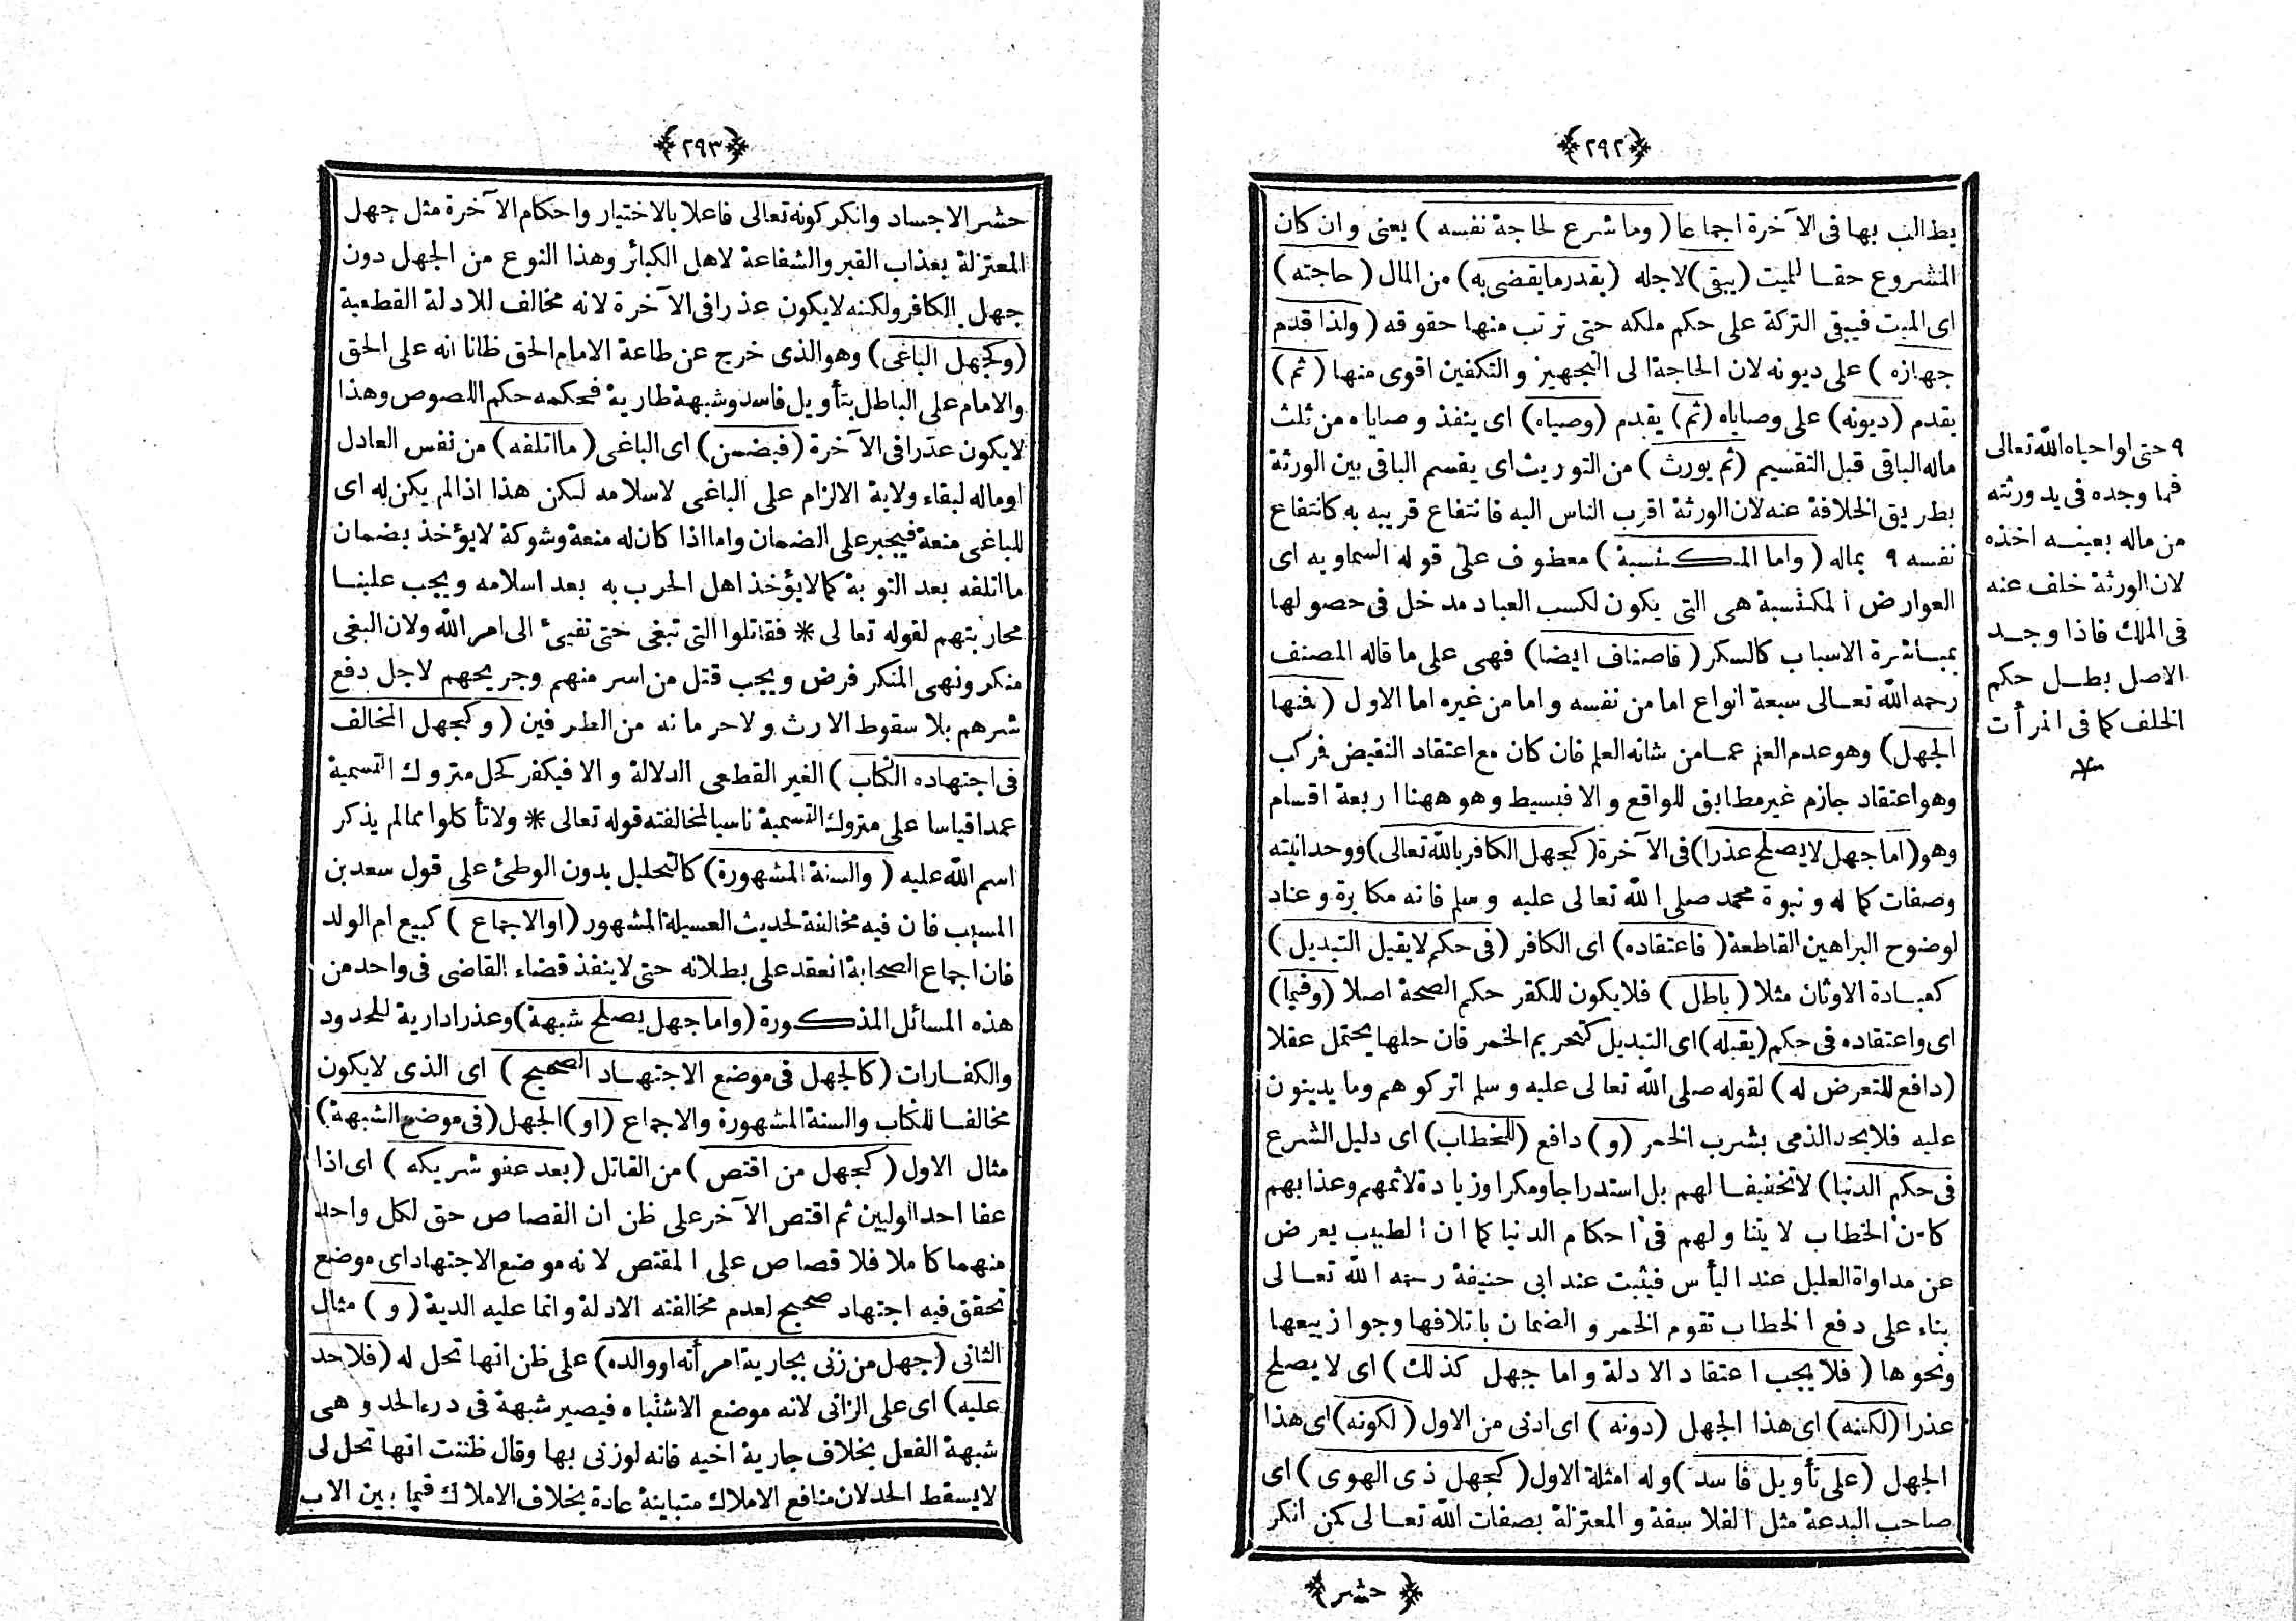 ﴿٢٩٢﴾
يطالب بها فى الآخرة اجماعا (وما شرع لحاجة نفسه) يعنى وان كان
المشروع حقا للميت (يبقى) لاجله (بقدر ما يقضى به) من المال (حاجته)
اى الميت فيبقى التركة على حكم ملكه حتى ترتب منها حقوقه (ولذا قدم
جهازه) على ديونه لان الحاجة الى التجهيز والتكفين اقوى منها (ثم)
يقدم (ديونه) على وصاياه (ثم) يقدم (وصياه) اى ينفذ وصاياه من ثلث
ماله الباقى قبل التقسيم (ثم يورث) من التوريث اى يقسم الباقى بين الورثة
بطريق الخلافة عنه لان الورثة اقرب الناس اليه فانتفاع قريبه به كانتفاع
نفسه ٩ بماله (واما المكتسبة) معطوف على قوله السماويه اى
العوارض المكتسبة هى التى يكون لكسب العباد مدخل فى حصولها
بمباشرة الاسباب كالسكر (فاصناف ايضا) فهى على ما قاله المصنف
رحمه الله تعالى سبعة انواع اما من نفسه واما من غيره اما الاول (فمنها
الجهل) وهو عدم العلم عما من شانه العلم فان كان مع اعتقاد النقيض فركب
وهو اعتقاد جازم غير مطابق للواقع والا فبسيط وهو ههنا اربعة اقسام
وهو (اما جهل لا يصلح عذرا) فى الآخرة (كجهل الكافر بالله تعالى) ووحدانيته
وصفات كماله ونبوة محمد صلى الله تعالى عليه وسلم فانه مكابرة وعناد
لوضوح البراهين القاطعة (فاعتقاده) اى الكافر (فى حكم لا يقبل التبديل)
كعبادة الاوثان مثلا (باطل) فلا يكون للكفر حكم الصحة اصلا (وفيما)
اى واعتقاده فى حكم (يقبله) اى التبديل كتحريم الخمر فان حلها يحتمل عقلا
(دافع للتعرض له) لقوله صلى الله تعالى عليه وسلم اتركوهم وما يدينون
عليه فلا يحد الذمى بشرب الخمر (و) دافع (للخطاب) اى دليل الشرع
فى حكم الدنيا) لا تخفيفا لهم بل استدراجا ومكرا وزيادة لاثمهم وعذابهم
كان الخطاب لا يتناولهم فى احكام الدنيا كما ان الطبيب يعرض
عن مداواة العليل عند اليأس فيثبت عند ابى حنيفة رحمه الله تعالى
بناء على دفع الخطاب تقوم الخمر والضمان باتلافها وجواز بيعها
ونحوها (فلا يجب اعتقاد الادلة واما جهل كذلك) اى لا يصلح
عذرا (لكنه) اى هذا الجهل (دونه) اى ادنى من الاول (لكونه) اى هذا
الجهل (على تأويل فاسد) وله امثلة الاول (كجهل ذى الهوى) اى
صاحب البدعة مثل الفلاسفة والمعتزلة بصفات الله تعالى كمن انكر
﴿حشر﴾
٩ حتى او احياه الله تعالى
فما وجده فى يد ورثته
من ماله بعينه اخذه
لان الورثة خلف عنه
فى الملك فاذا وجد
الاصل بطل حكم
الخلف كما فى المرأت
﴿٢٩٣﴾
حشر الاجساد وانكر كونه تعالى فاعلا بالاختيار واحكام الآخرة مثل جهل
المعتزلة بعذاب القبر والشفاعة لاهل الكبائر وهذا النوع من الجهل دون
جهل الكافر ولكنه لا يكون عذرا فى الآخرة لانه مخالف للادلة القطعية
(وكجهل الباغى) وهو الذى خرج عن طاعة الامام الحق ظانا انه على الحق
والامام على الباطل بتأويل فاسد وشبهة طارية فحكمه حكم اللصوص وهذا
لا يكون عذرا فى الآخرة (فيضمن) اى الباغى (ما اتلفه) من نفس العادل
او ماله لبقاء ولاية الالزام على الباغى لاسلامه لكن هذا اذا لم يكن له اى
للباغى منعة فيجبر على الضمان واما اذا كان له منعة وشوكة لا يؤخذ بضمان
ما اتلفه بعد التوبة كما لا يؤخذ اهل الحرب به بعد اسلامه ويجب علينا
محاربتهم لقوله تعالى * فقاتلوا التى تبغى حتى تفيئ الى امر الله ولان البغى
منكر ونهى المنكر فرض ويجب قتل من اسر منهم وجريحهم لاجل دفع
شرهم بلا سقوط الارث ولا حرمانه من الطرفين (وكجهل المخالف
فى اجتهاده الكتاب) الغير القطعى الدلالة والا فيكفر كحل متروك التسمية
عمدا قياسا على متروك التسمية ناسيا لمخالفته قوله تعالى * ولا تأكلوا مما لم يذكر
اسم الله عليه (والسنة المشهورة) كالتحليل بدون الوطئ على قول سعد بن
المسيب فان فيه مخالفة لحديث العسيلة المشهور (او الاجماع) كبيع ام الولد
فان اجماع الصحابة انعقد على بطلانه حتى لا ينفذ قضاء القاضى فى واحد من
هذه المسائل المذكورة (واما جهل يصلح شبهة) وعذرا دارية للحدود
والكفارات (كالجهل فى موضع الاجتهاد الصحيح) اى الذى لا يكون
مخالفا للكتاب والسنة المشهورة والاجماع (او) الجهل (فى موضع الشبهة)
مثال الاول (كجهل من اقتص) من القاتل (بعد عفو شريكه) اى اذا
عفا احد الوليين ثم اقتص الآخر على ظن ان القصاص حق لكل واحد
منهما كاملا فلا قصاص على المقتص لانه موضع الاجتهاد اى موضع
تحقق فيه اجتهاد صحيح لعدم مخالفته الادلة وانما عليه الدية (و) مثال
الثانى (جهل من زنى بجارية امرأته او والده) على ظن انها تحل له (فلا حد
عليه) اى على الزانى لانه موضع الاشتباه فيصير شبهة فى درء الحد وهى
شبهة الفعل بخلاف جارية اخيه فانه لو زنى بها وقال ظننت انها تحل لى
لا يسقط الحد لان منافع الاملاك متباينة عادة بخلاف الاملاك فيما بين الاب